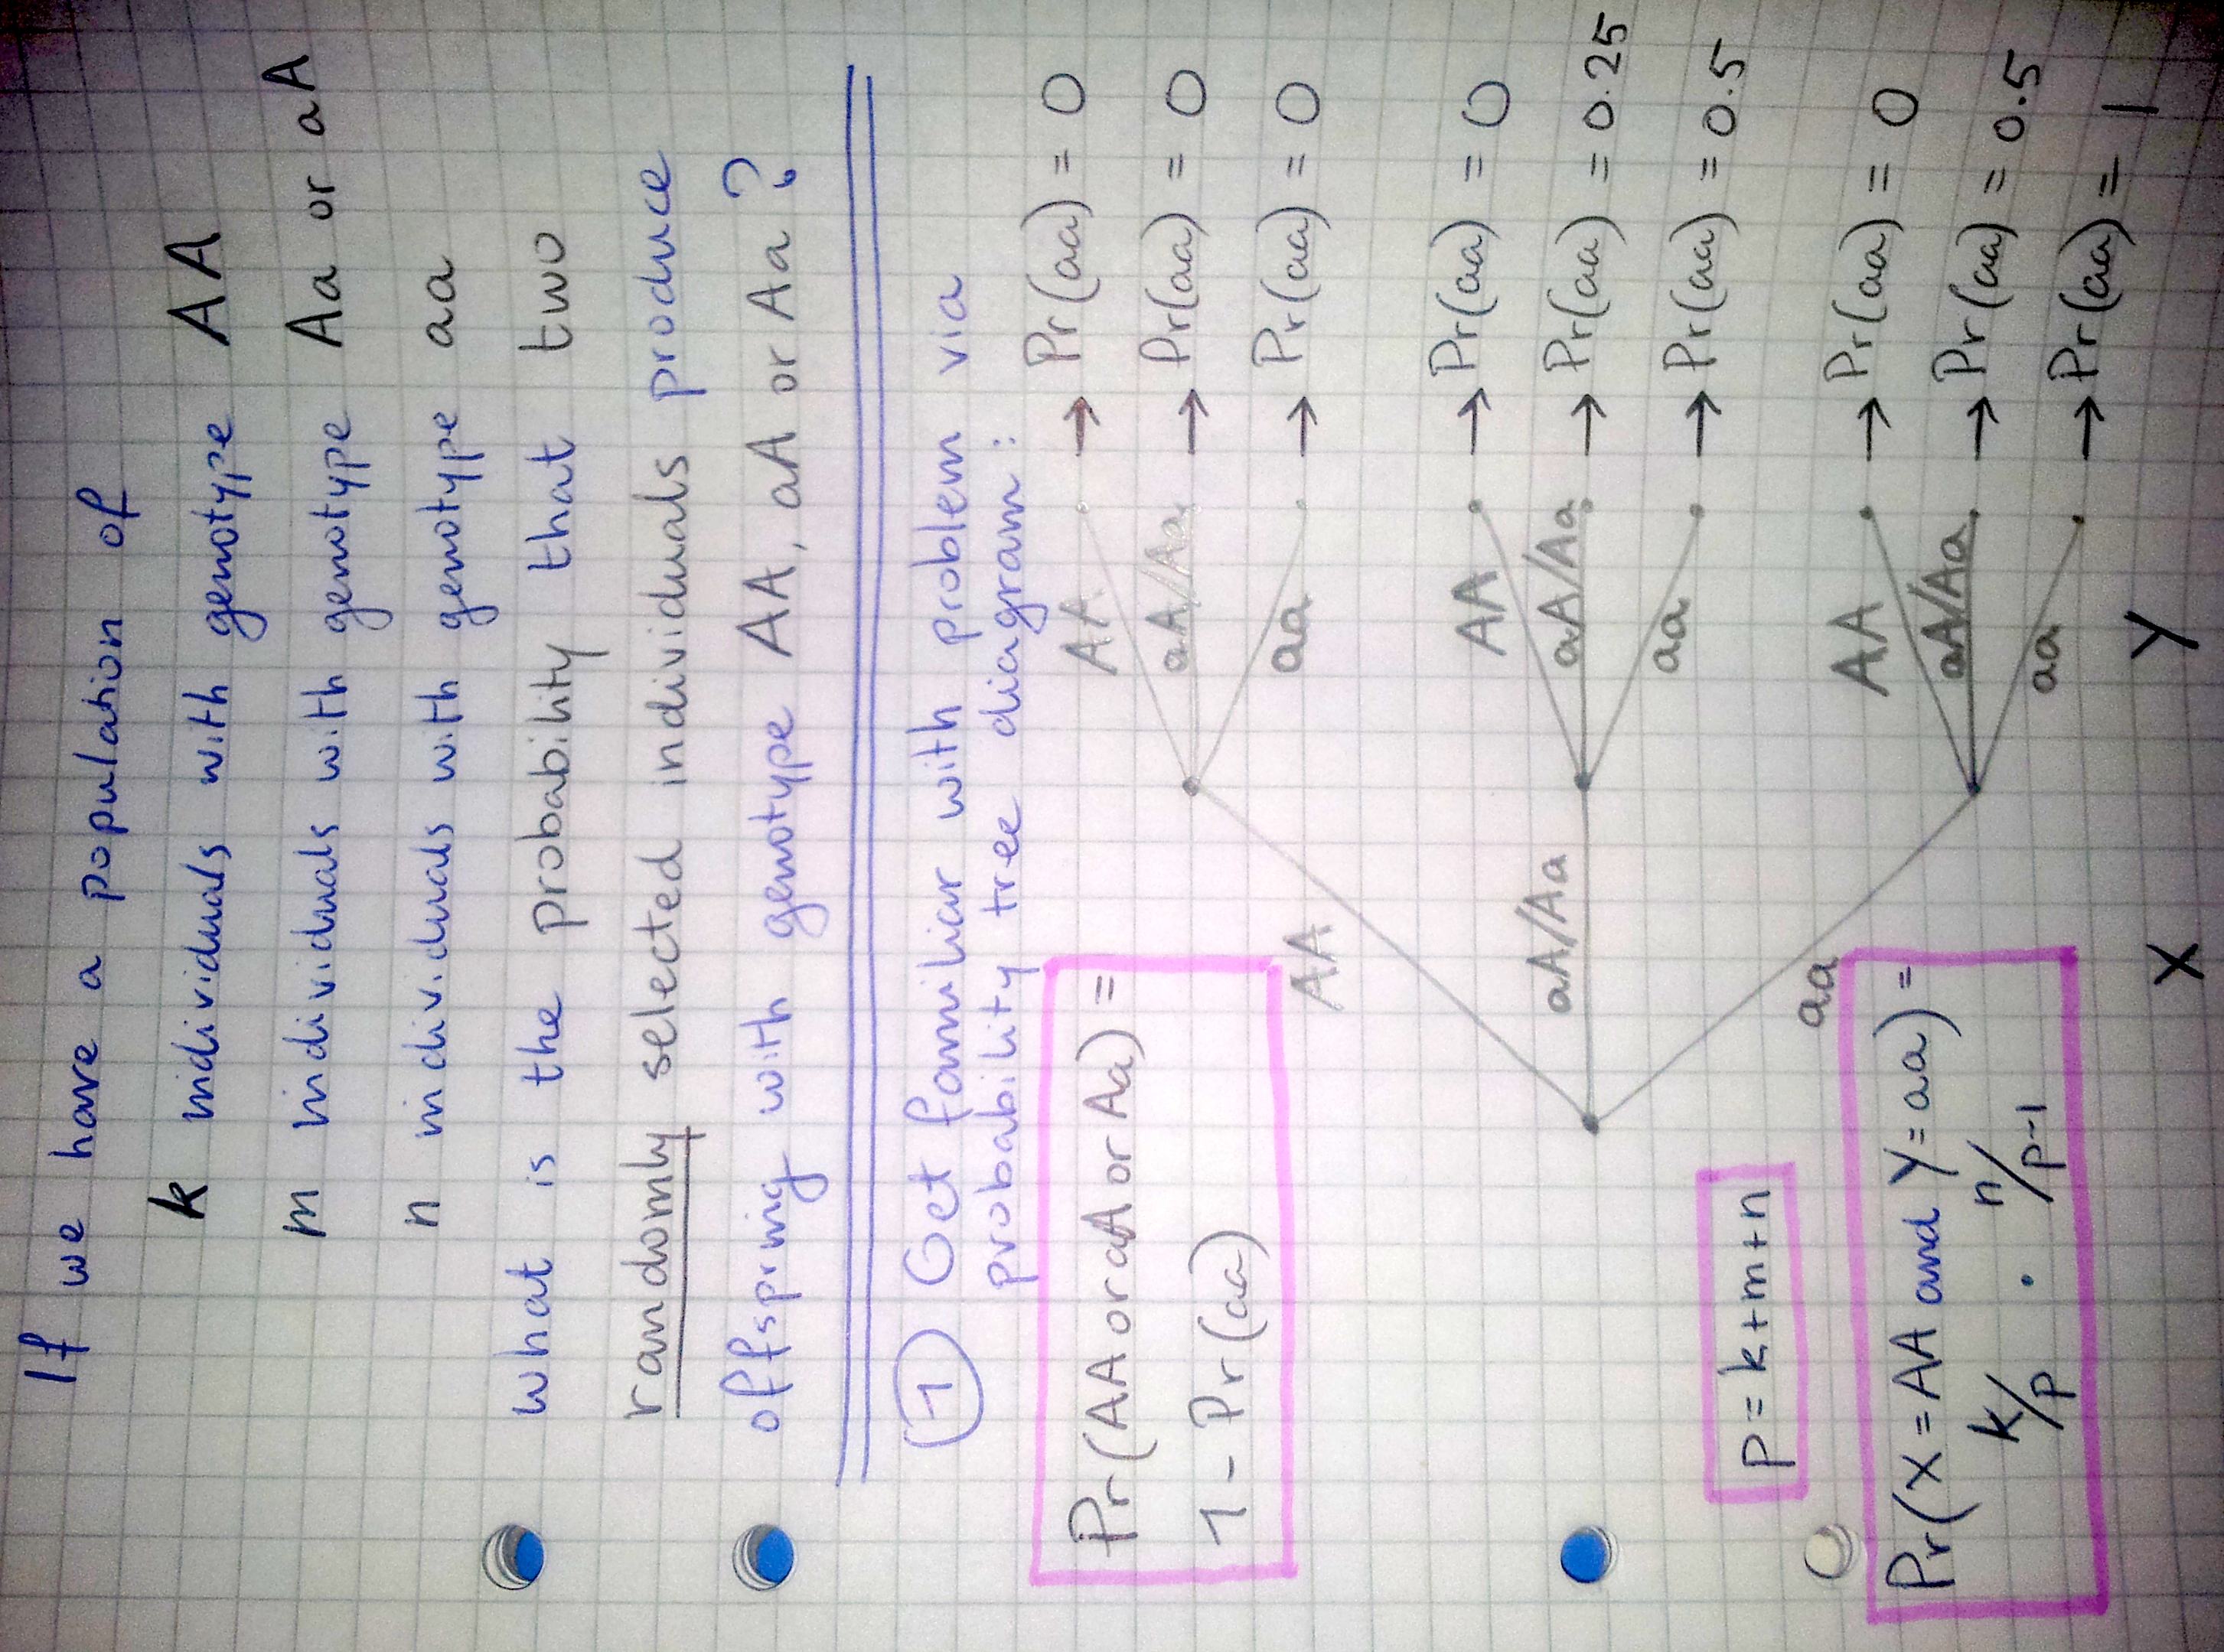 If we have a population of
k individuals with genotype AA
m individuals with genotype Aa or aA
n individuals with genotype aa
what is the probability that two
randomly selected individuals produce
offspring with genotype AA, aA or Aa?
① Get familiar with problem via
probability tree diagram:
Pr(AA or aA or Aa) =
1 - Pr(aa)
AA
AA → Pr(aa) = 0
aA/Aa → Pr(aa) = 0
aa → Pr(aa) = 0
aA/Aa
AA → Pr(aa) = 0
aA/Aa → Pr(aa) = 0.25
aa → Pr(aa) = 0.5
aa
AA → Pr(aa) = 0
aA/Aa → Pr(aa) = 0.5
aa → Pr(aa) = 1
p = k+m+n
Pr(X = AA and Y = aa) =
k/p · n/p-1
X Y